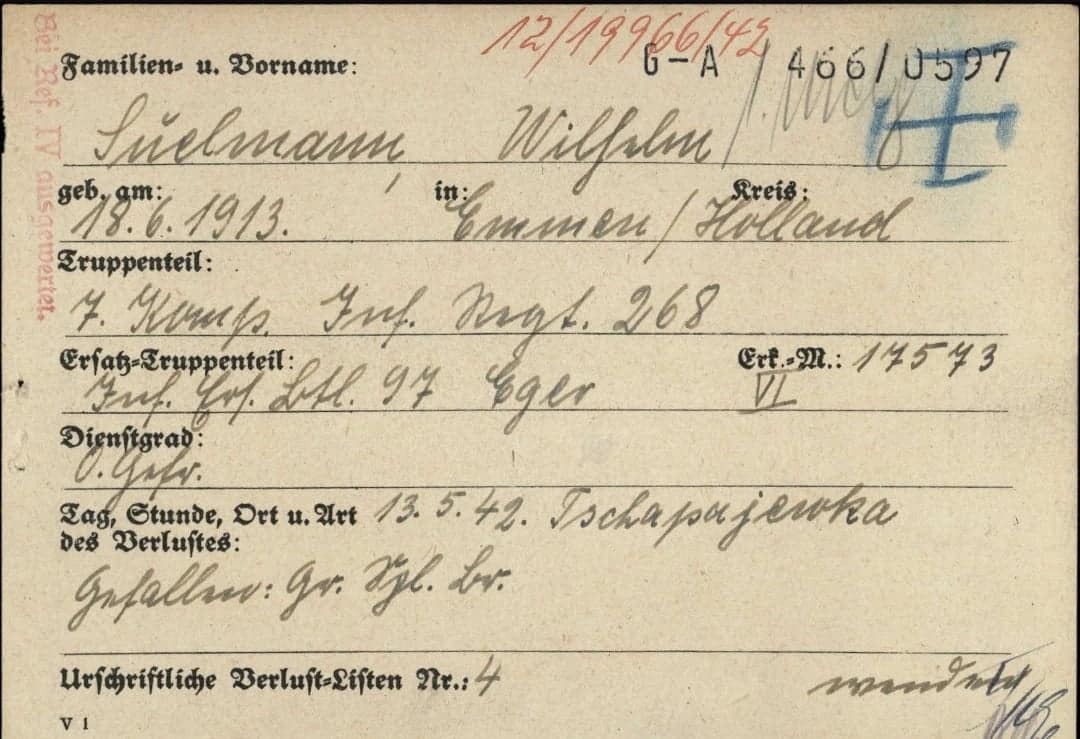 12/19966/42
G-A 466/0597
Familien- u. Vorname:
Suelmann, Wilhelm
geb. am: in: Kreis:
18.6.1913. Emmen / Holland
Truppenteil:
7. Komp. Inf. Regt. 268
Ersatz-Truppenteil: Erk.-M.: 17573
Inf. Ers. Btl. 97 Eger VI
Dienstgrad:
O. Gefr.
Tag, Stunde, Ort u. Art 13.5.42. Tschapajewka
des Verlustes:
Gefallen: Gr. Spl. Br.
Urschriftliche Verlust-Listen Nr.: 4 wenden
V 1
Bei Ref. IV ausgewertet.